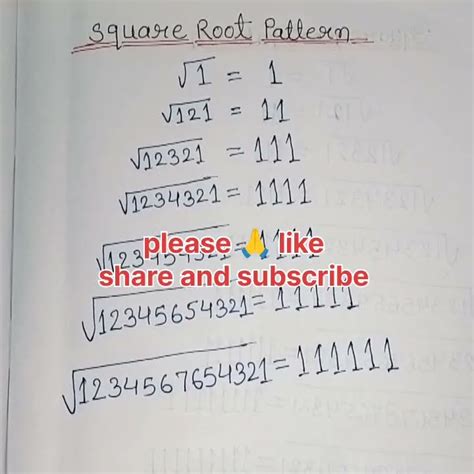 Square Root Pattern
√1 = 1
√121 = 11
√12321 = 111
√1234321 = 1111
√123454321 = 1111
please 🙏 like
share and subscribe
√12345654321 = 11111
√1234567654321 = 111111